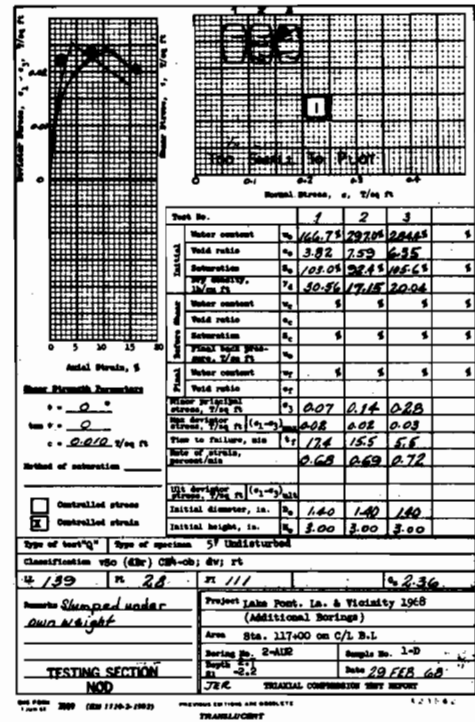 1 2 3
Deviator Stress, σ₁ - σ₃, T/sq ft
Shear Stress, s, T/sq ft
0
0 5 10 15 20
Axial Strain, %
1
TOO SMALL TO PLOT
0 0.1 0.2 0.3 0.4
Normal Stress, σ, T/sq ft
Shear Strength Parameters
φ = 0 °
tan φ = 0
c = 0.010 T/sq ft
Method of saturation
Controlled stress
X Controlled strain
Test No. 1 2 3
Initial
Water content w₀ 166.7% 297.0% 284.8% %
Void ratio e₀ 3.82 7.59 6.35
Saturation S₀ 103.0% 92.4% 105.6% %
Dry density, lb/cu ft γd 30.56 17.15 20.04
Before Shear
Water content wc % % % %
Void ratio ec
Saturation Sc % % % %
Final back pressure, T/sq ft u₀
Final
Water content wf % % % %
Void ratio ef
Minor principal stress, T/sq ft σ₃ 0.07 0.14 0.28
Max deviator stress, T/sq ft (σ₁-σ₃)max 0.02 0.02 0.03
Time to failure, min tf 17.4 15.5 5.5
Rate of strain, percent/min 0.68 0.69 0.72
Ult deviator stress, T/sq ft (σ₁-σ₃)ult
Initial diameter, in. D₀ 1.40 1.40 1.40
Initial height, in. H₀ 3.00 3.00 3.00
Type of test "Q" Type of specimen 5" Undisturbed
Classification vSo (dBr) CH4-ob; dv; rt
LL 139 PL 28 PI 111 Gs 2.36
Remarks Slumped under
own weight
Project Lake Pont. La. & Vicinity 1968
(Additional Borings)
Area Sta. 117+00 on C/L B.L
Boring No. 2-AUP Sample No. 1-D
Depth El -2.2 Date 29 FEB 68
TESTING SECTION
NOD
JER TRIAXIAL COMPRESSION TEST REPORT
ENG FORM 1 JUN 65 2089 (EM 1110-2-1902) PREVIOUS EDITIONS ARE OBSOLETE
TRANSLUCENT